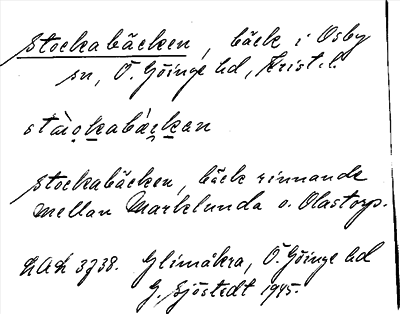 Stockabäcken, bäck i Osby
sn, Ö. Göinge hd, Krist. l.
Stockabäcken, bäck rinnande
mellan Marklunda o. Olastorp.
LAL 3738. Glimåkra, Ö. Göinge hd
G. Sjöstedt 1945.